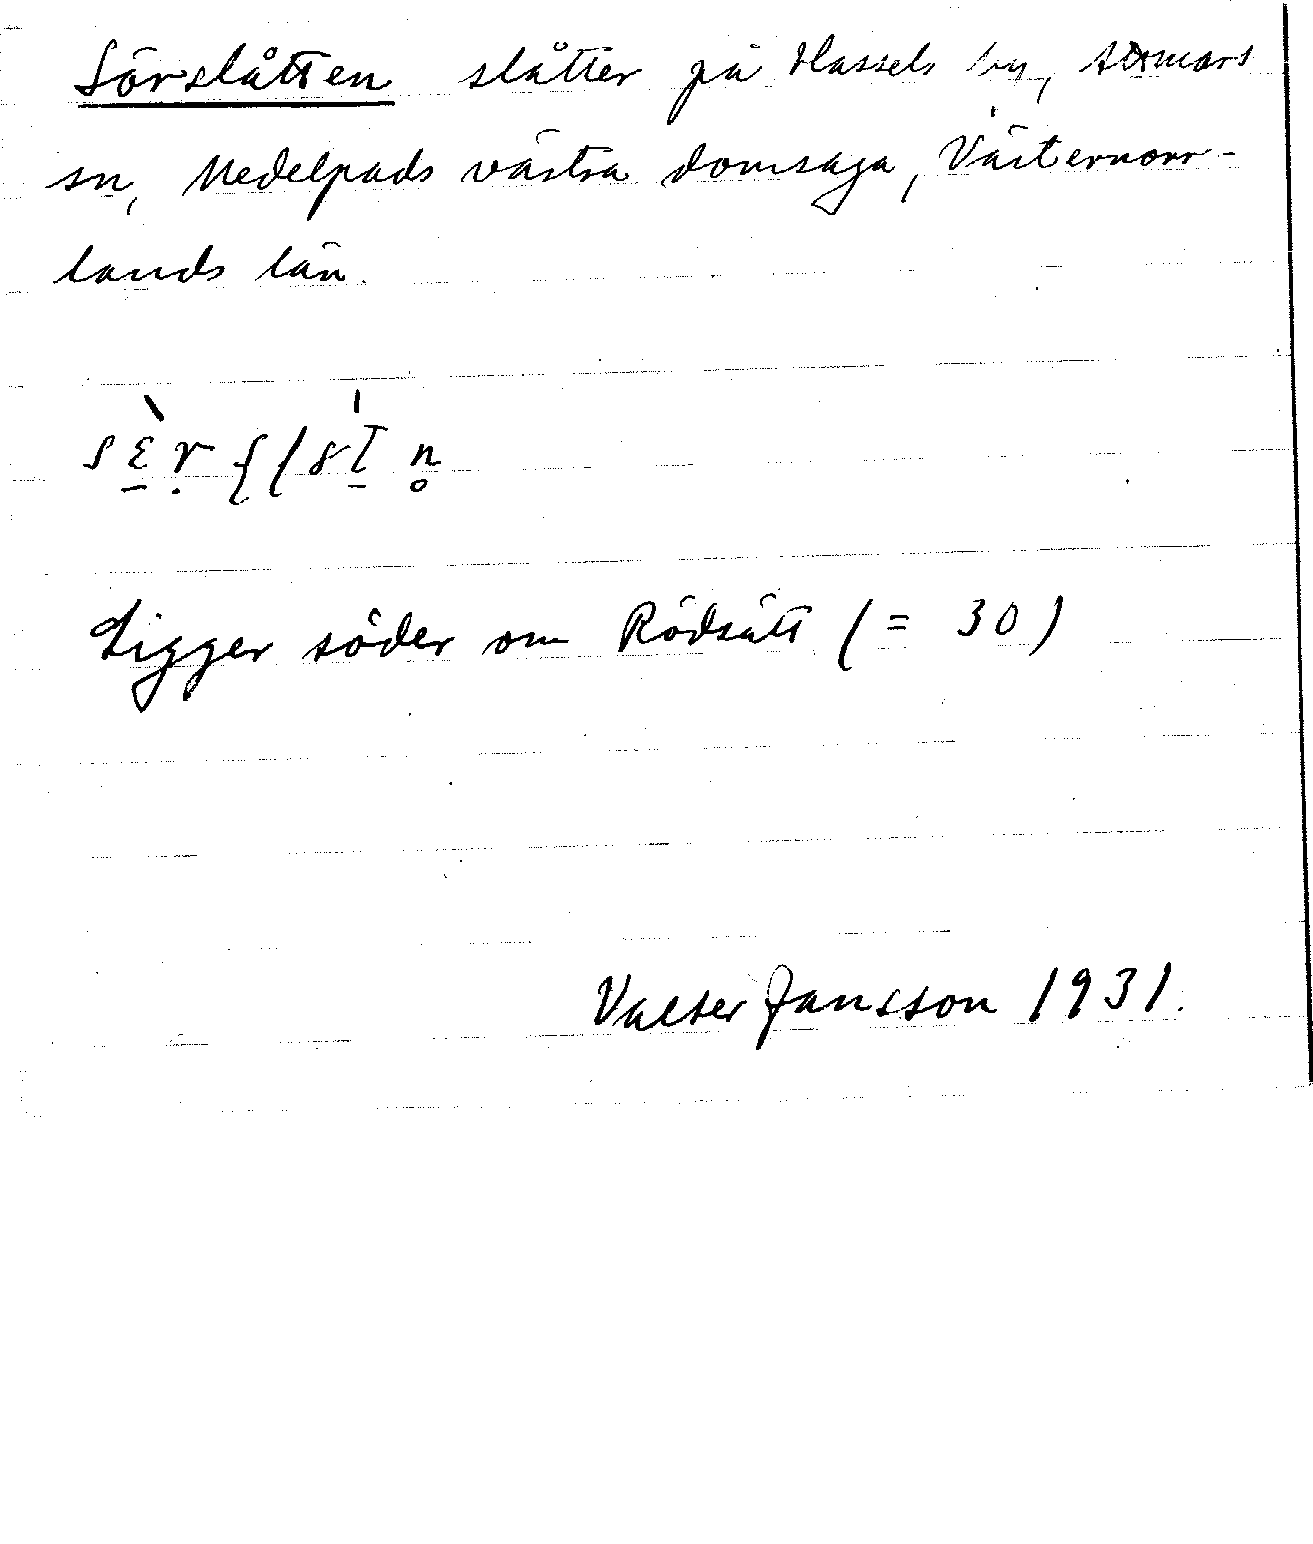 Sörslåtten slåtter på Hassels by, Attmars
sn, Medelpads västra domsaga, Västernorr-
lands län.
Ligger söder om Rödsätt (= 30)
Valter Jansson 1931.